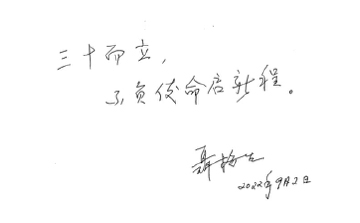 三十而立，
不负使命启新程。
聂梅生
2022年9月2日